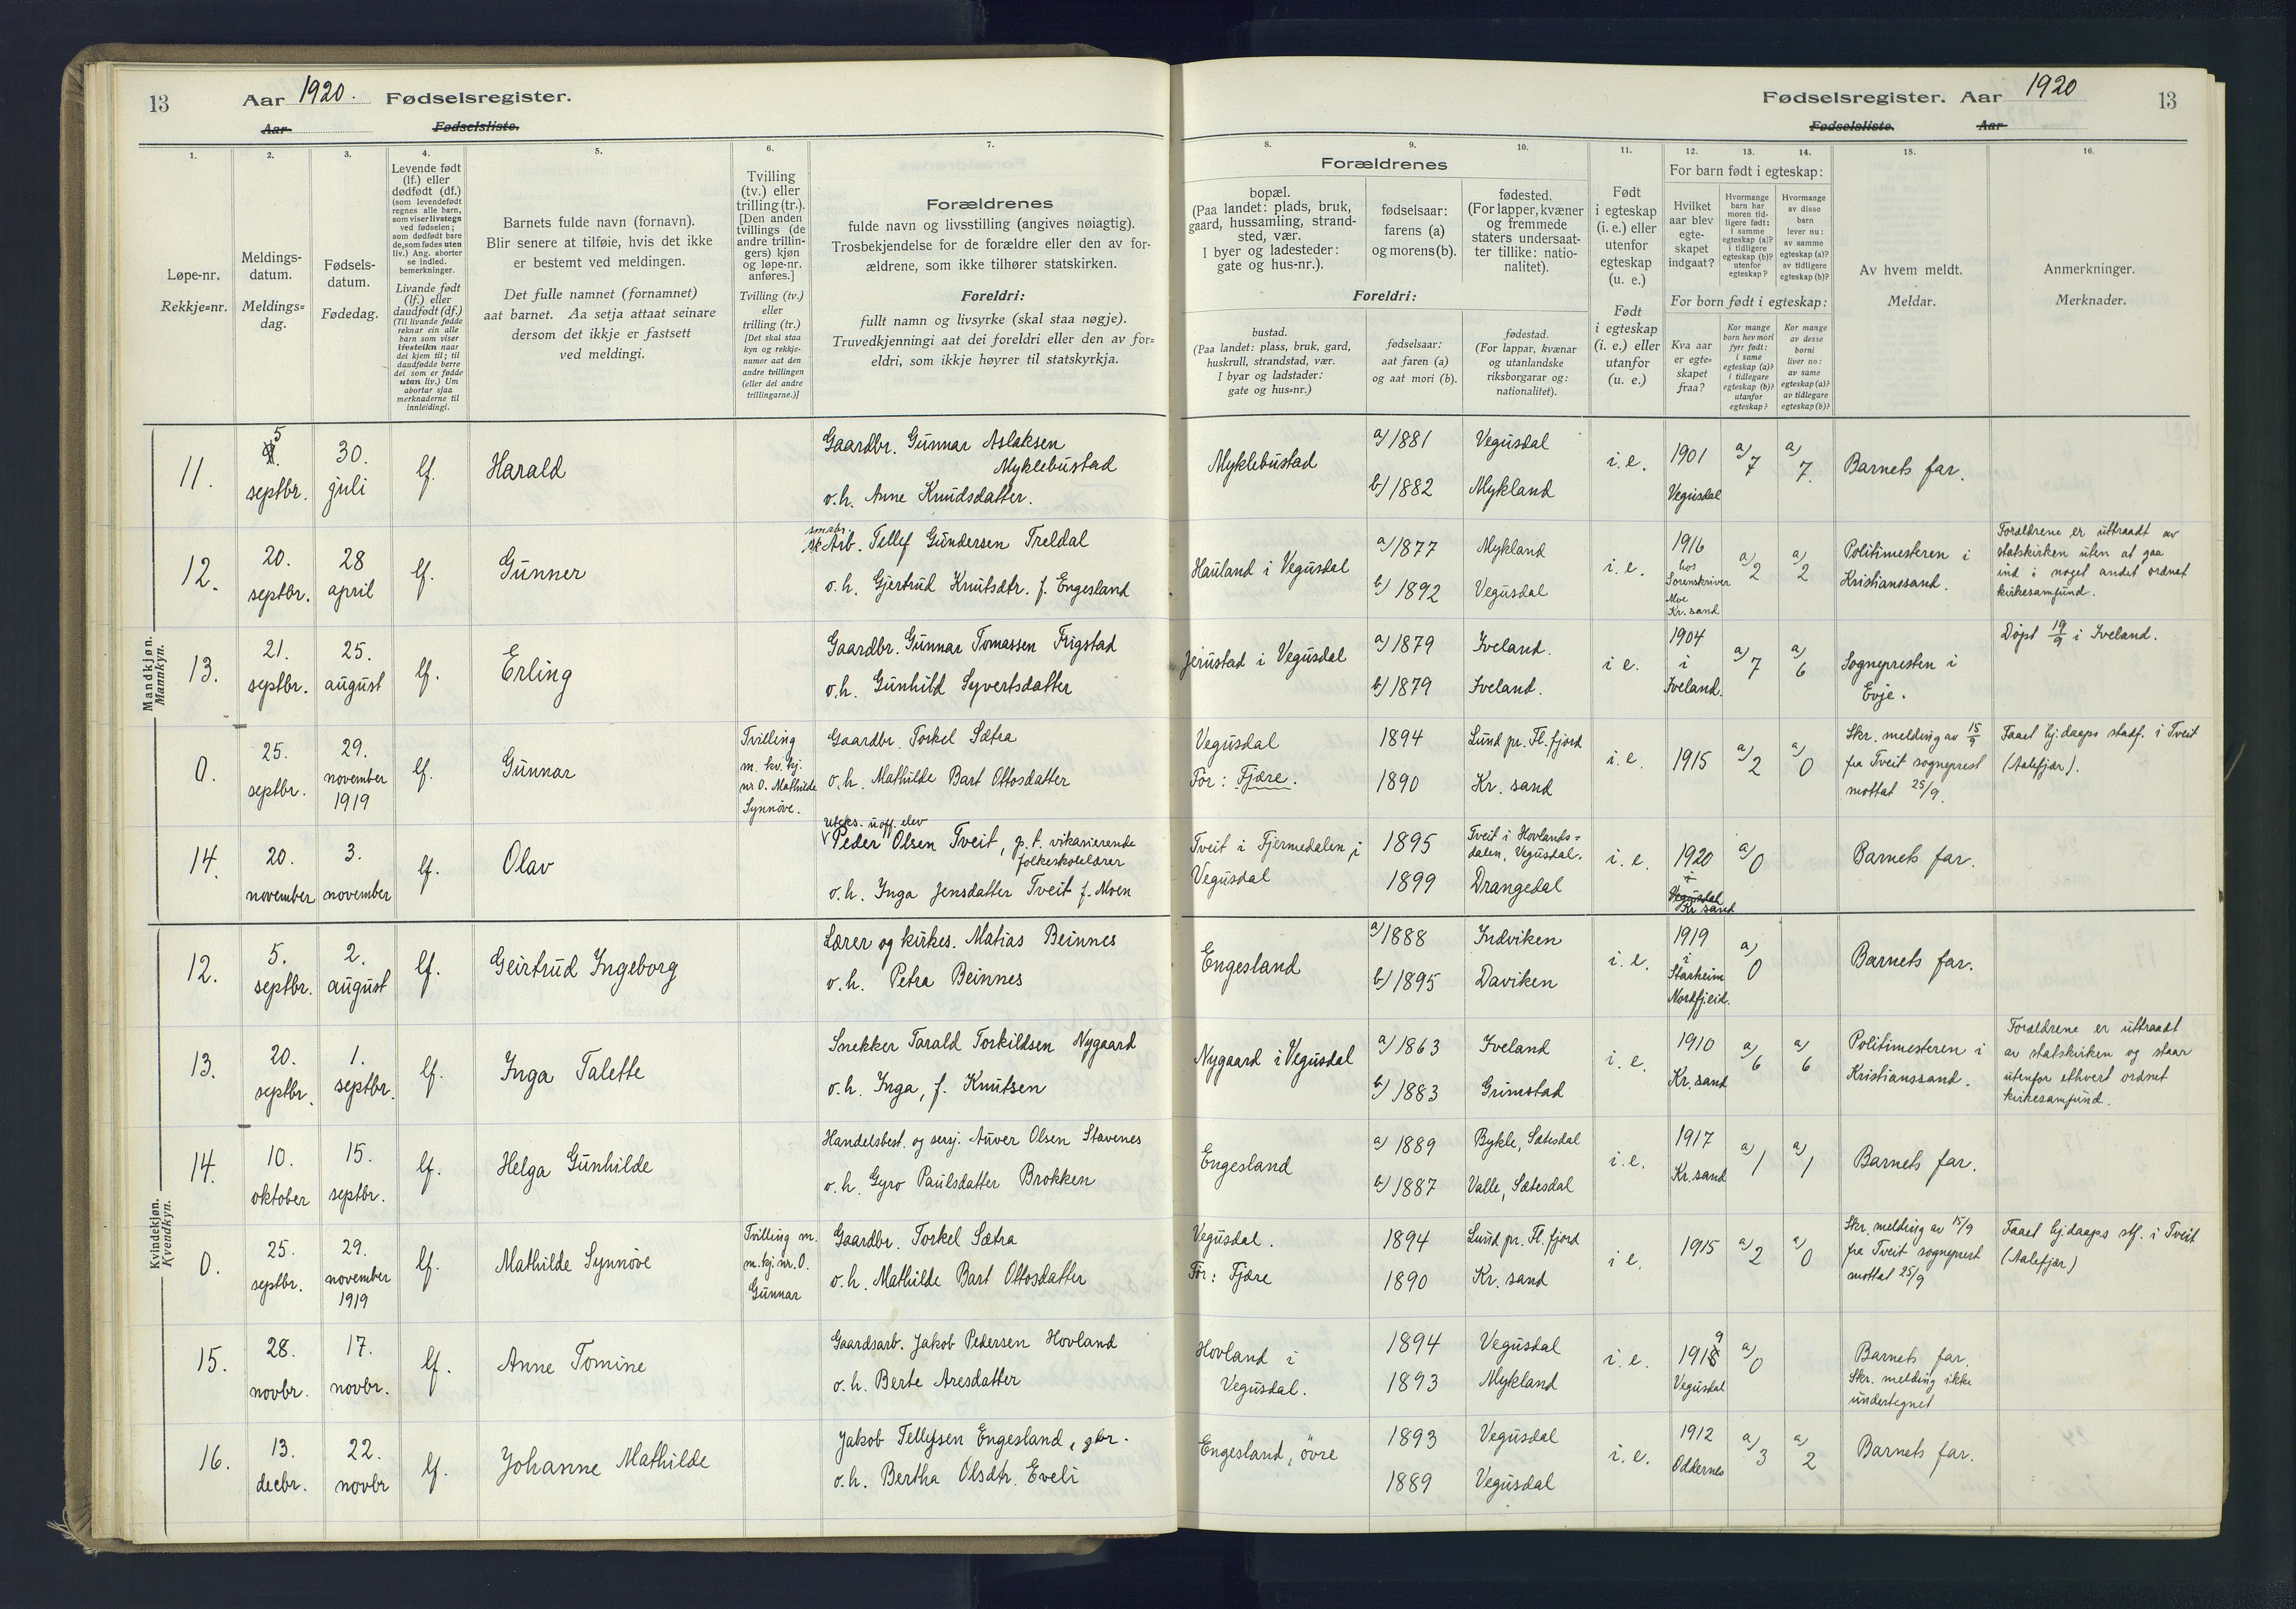 13
Aar 1920. Fødselsregister.
Aar Fødselsliste.
Fødselsregister. Aar 1920
13
Fødselsliste. Aar
1.
Løpe-nr.
Rekkje=nr.
2.
Meldings-
datum.
Meldings=
dag.
3.
Fødsels-
datum.
Fødedag.
4.
Levende født
(lf.) eller
dødfødt (df.)
(som levendefødt
regnes alle barn,
som viser livstegn
ved fødselen;
som dødfødt bare
de, som fødes uten
liv.) Ang. aborter
se indled.
bemerkninger.
Livande fødd
(lf.) eller
daudfødt (df.)
(Til livande fødde
reknar ein alle
barn som viser
livsteikn naar
dei kjem til; til
daudfødde berre
dei som er fødde
utan liv.) Um
abortar sjaa
merknaderne til
innleidingi.
5.
Barnets fulde navn (fornavn).
Blir senere at tilføie, hvis det ikke
er bestemt ved meldingen.
Det fulle namnet (fornamnet)
aat barnet. Aa setja attaat seinare
dersom det ikkje er fastsett
ved meldingi.
6.
Tvilling
(tv.) eller
trilling (tr.).
[Den anden
tvillings (de
andre trillin-
gers) kjøn
og løpe-nr.
anføres.]
Tvilling (tv.)
eller
trilling (tr.)
[Det skal staa
kyn og rekkje-
numer aat den
andre tvillingen
(eller dei andre
trillingarne.)]
7.
Forældrenes
fulde navn og livsstilling (angives nøiagtig).
Trosbekjendelse for de forældre eller den av for-
ældrene, som ikke tilhører statskirken.
Foreldri:
fullt namn og livsyrke (skal staa nøgje).
Truvedkjenningi aat dei foreldri eller den av for=
eldri, som ikkje høyrer til statskyrkja.
8. 9. 10.
Forældrenes
bopæl.
(Paa landet: plads, bruk,
gaard, hussamling, strand-
sted, vær.
I byer og ladesteder:
gate og hus-nr.).
fødselsaar:
farens (a)
og morens (b).
fødested.
(For lapper, kvæner
og fremmede
staters undersaat-
ter tillike: natio-
nalitet).
Foreldri:
bustad.
(Paa landet: plass, bruk, gard,
huskrull, strandstad, vær.
I byar og ladstader:
gate og hus=nr.)
fødselsaar:
aat faren (a)
og aat mori (b).
fødestad.
(For lappar, kvænar
og utanlandske
riksborgarar og:
nationalitet).
11.
Født
i egteskap
(i. e.) eller
utenfor
egteskap
(u. e.)
Født
i egteskap
(i. e.) eller
utanfor
(u. e.)
12. 13. 14.
For barn født i egteskap:
Hvilket
aar blev
egte-
skapet
indgaat?
Hvormange
barn har
moren tid-
ligere født:
i samme
egteskap (a)?
i tidligere
egteskap (b)?
utenfor
egteskap?
Hvormange
av disse
barn
lever nu:
av samme
egteskap (a)?
av tidligere
egteskap (b)?
For born født i egteskap:
Kva aar
er egte=
skapet
fraa?
Kor mange
born hev mori
fyrr født:
i same
egteskap (a)?
i tidlegare
egteskap (b)?
utanfor
egteskap?
Kor mange
av desse
borni
liver no:
av same
egteskap (a)?
av tidlegare
egteskap (b)?
15.
Av hvem meldt.
Meldar.
16.
Anmerkninger.
Merknader.
Mandkjøn.
Mannkyn.
11. 5 septbr. 30. juli lf. Harald
Gaardbr. Gunnar Aslaksen
Myklebustad
o. h. Anne Knudsdatter.
Myklebustad a) 1881 Vegusdal
b) 1882 Mykland
i. e. 1901 Vegusdal a) 7 a) 7. Barnets far.
12. 20. septbr. 28 april lf. Gunner
smabr.
Arb. Tellef Gundersen Treldal
o. h. Gjertrud Knutsdtr. f. Engesland
Hauland i Vegusdal a) 1877 Mykland
b) 1892 Vegusdal
i. e. 1916
hos
Sorenskriver
Moe
Kr. sand
a) 2 a) 2
Politimesteren i
Kristianssand.
Forældrene er uttraadt av
statskirken uten at gaa
ind i noget andet ordnet
kirkesamfund.
13. 21. septbr. 25. august lf. Erling
Gaardbr. Gunnar Tomassen Frigstad
o. h. Gunhild Syvertsdatter
Jerustad i Vegusdal a) 1879 Iveland.
b) 1879 Iveland.
i e. 1904
i
Iveland.
a) 7 a) 6
Sognepresten i
Evje.
Døpt 19/9 i Iveland.
0. 25. septbr. 29. november 1919 lf. Gunnar
Tvilling
m. kv. kj.
nr 0. Mathilde
Synnöve.
Gaardbr. Torkel Sætra
o. h. Mathilde Bart Ottosdatter
Vegusdal
För: Fjære.
1894 Lund pr. Fl. fjord
1890 Kr. sand
i. e. 1915 a) 2 a) 0
Skr. melding av 15/9
fra Tveit sogneprest
mottat 25/9.
Faaet hj. daaps stadf. i Tveit
(Aalefjær).
14. 20. november 3. november lf. Olav
Peder Olsen Tveit, p. t. vikarierende
folkeskolelærer
o. h. Inga Jensdatter Tveit f. Moen
Tveit i Fjermedalen i
Vegusdal
1895 Tveit i Hovlands=
dalen, Vegusdal.
1899 Drangedal
i. e. 1920
i
Vegusdal
Kr sand
a) 0
Barnets far.
Kvindekjøn.
Kvendkyn.
12. 5. septbr. 2. august lf. Geirtrud Ingeborg
Lærer og kirkes. Matias Beinnes
o. h. Petra Beinnes
Engesland a) 1888 Indviken
b) 1895 Daviken
i. e. 1919
i
Starheim
Nordfjeid.
a) 0
Barnets far.
13. 20. septbr. 1. septbr. lf. Inga Talette
Snekker Tarald Torkildsen Nygaard
o. h. Inga, f. Knutsen
Nygaard i Vegusdal a) 1863 Iveland
b) 1883 Grimstad
i. e. 1910 Kr. sand a) 6 a) 6
Politimesteren i
Kristianssand.
Forældrene er uttraadt
av statskirken og staar
utenfor ethvert ordnet
kirkesamfund.
14. 10. oktober 15. septbr. lf. Helga Gunhilde
Handelsbest. og sersj. Auver Olsen Stavenes
o. h. Gyro Paulsdatter Brokken
Engesland a) 1889 Bykle, Sætesdal
b) 1887 Valle, Sætesdal
i. e. 1917 Kr. sand a) 1 a) 1 Barnets far.
0. 25. septbr. 29. november 1919 lf. Mathilde Synnöve
Tvilling m.
m. kj. nr. 0.
Gunnar
Gaardbr. Torkel Sætra
o. h. Mathilde Bart Ottosdatter
Vegusdal.
För: Fjære
1894 Lund pr. Fl. fjord
1890 Kr. sand
i e. 1915 a) 2 a) 0
Skr. melding av 15/9
fra Tveit sogneprest
mottat 25/9
Faaet hj. daaps stf. i Tveit
(Aalefjær)
15. 28. novbr. 17. novbr. lf. Anne Tomine
Gaardsarb. Jakob Pedersen Hovland
o. h. Berte Aresdatter
Hovland i
Vegusdal.
1894 Vegusdal
1893 Mykland
i. e. 1919 Vegusdal a) 0
Barnets far.
Skr. melding ikke
undertegnet
16. 13. decbr. 22. novbr lf. Johanne Mathilde
Jakob Tellefsen Engesland, gbr.
o. h. Bertha Olsdtr. Eveli
Engesland, övre
1893 Vegusdal
1889 Vegusdal
i. e. 1912 Oddernes a) 3 a) 2 Barnets far.